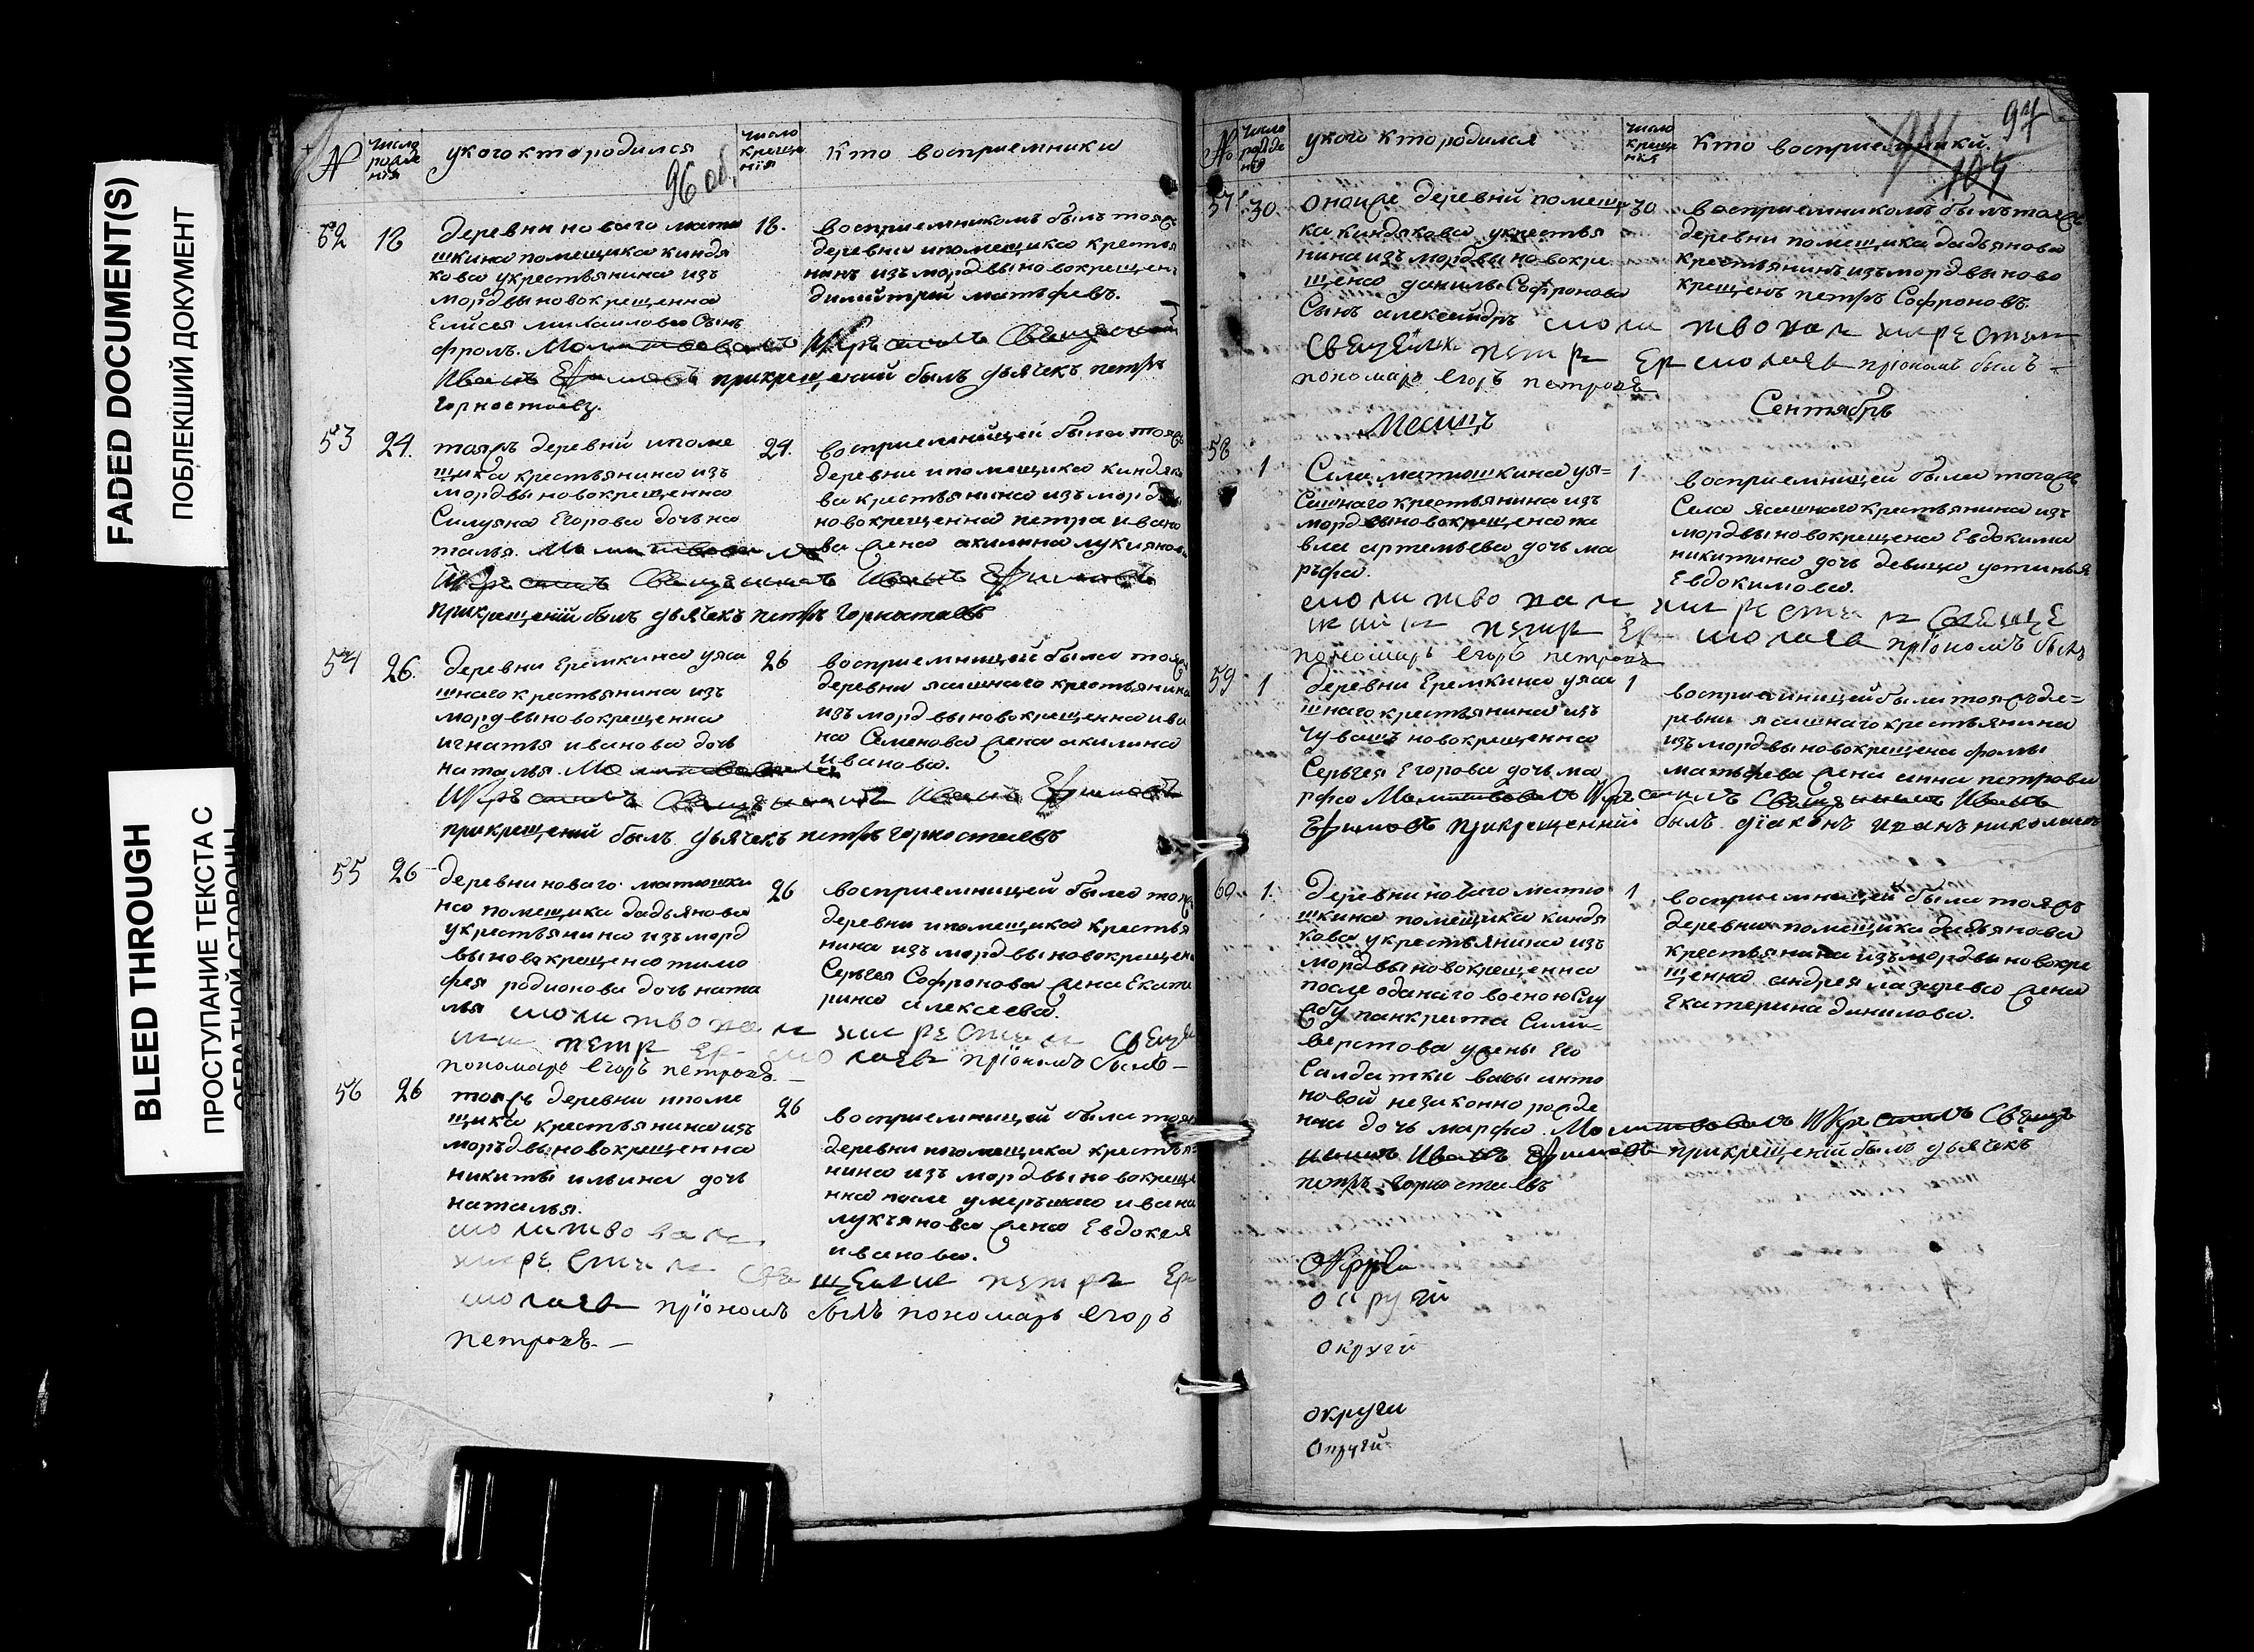 FADED DOCUMENT(S)
ПОБЛЕКШИЙ ДОКУМЕНТ
BLEED THROUGH
ПРОСТУПАНИЕ ТЕКСТА С
ОБРАТНОЙ СТОРОНЫ
№
число рожде нія
укого кто родился
96 об.
число креще нія
кто восприемники
52
18
деревни новаго матю
шкина помещика киндя
кова укрестьянина изъ
мордвы новокрещенна
Елисея михаилова Сынъ
фролъ. Молитвовалъ Икрестилъ Священникъ
Иванъ Ефимовъ прикрещений былъ дьячекъ петръ
Горностаевъ.
18.
восприемникомъ былъ тояжъ
деревни ипомещика крестья
нинъ изъ мордвы новокрещен
димитрей матьфевъ.
53
24.
тояжъ деревни ипоме
щика крестьянина изъ
мордвы новокрещенна
Силуяна Егорова дочь на
талья. Молитвовалъ
Икрестилъ Священникъ Иванъ Ефимовъ
прикрещеніи былъ дьячекъ петръ Горностаевъ
24.
восприемницей была тояжъ
деревни ипомещика киндяко
ва крестьянина изъ мордвы
новокрещенна петра ивано
ва жена акилина лукиянова
54
26.
деревни Еремкина уяса
шнаго крестьянина изъ
мордвы новокрещенна
игнатья иванова дочь
наталья. Молитвовалъ
Икрестилъ Священникъ Иванъ Ефимовъ
прикрещений былъ дьячекъ петръ горностаевъ
26
восприемницей была тояжъ
деревни ясашнаго крестьянина
изъ мордвы новокрещенна ива
на Семенова жена акилина
иванова.
55
26
деревни новаго матюшки
на помещика дадьянова
укрестьянина изъ морд
вы новокрещенна тимо
фея родионова дочь ната
лья молитвовалъ икрестилъ Свеще
никъ петръ Ермолаевъ пріономъ былъ
пономарь егоръ петровъ.
26
восприемницей была тояжъ
деревни ипомещика крестья
нина изъ мордвы новокрещен
Серьгея Софронова жена Екате
рина алексеева.
56
26
тояжъ деревни ипоме
щика крестьянина изъ
моръдвы новокрещенна
никиты ильина дочь
наталья.
молитвовалъ
икрестилъ Священикъ петръ Ер
молаевъ пріономъ былъ пономарь егоръ
петровъ.
26
восприемницей была тояжъ
деревни ипомещика крестья
нина изъ мордвы новокреще
нна после умеръшаго ивана
лукъянова жена Евдокея
иванова.
№
число рожде нія
укого кто родился
число креще нія
кто восприемники
97
104
57
30.
онойже деревни помещи
ка киндякова укрестья
нина изъ мордвы новокре
щена данилы Софронова
Сынъ александръ молитвовалъ икрестилъ
Священикъ петръ Ермолаевъ пріономъ былъ
пономарь егоръ петровъ
30
восприемникомъ былъ тояжъ
деревни помещика дадьянова
крестьянинъ изъ мордвы ново
крещенъ петръ Софроновъ.
Месяцъ
Сентябрь
58
1
Села матюшкина уя=
Сашнаго крестьянина изъ
мордвы новокрещена па
вла артемьева дочь ма
ръфа.
молитвовалъ икрестилъ Свеще
никъ петръ Ермолаевъ пріономъ былъ
пономарь егоръ петровъ
1
восприемницей была тогожъ
Села ясашнаго крестьянина изъ
мордвы новокрещена Евдокима
никитина дочь девица устинья
Евдокимова.
59
1
деревни Еремкина уяса
шнаго крестьянина изъ
чувашъ новокрещенна
Серьгея Егорова дочь ма
рфа Молитвовалъ Икрестилъ Священникъ Иванъ
Ефимовъ прикрещенній былъ діаконъ иванъ николаевъ
1
восприемницей была тояжъ де=
ревни ясашнаго крестьянина
изъ мордвы новокрещена фомы
матьфева жена анна петрова
60.
1.
Деревни новаго матю
шкина помещика киндя
кова укрестьянина изъ
мордвы новокрещенна
после оданаго военоюслу
жбу панкрата Сили=
верстова ужены Его
Салдатки васы анто
новой незаконно рожде
ная дочь марфа. Молитвовалъ Икрестилъ Священ
никъ Иванъ Ефимовъ прикрещеніи былъ дьячекъ
петръ горностаевъ
1
восприемницей была тояжъ
деревни помещика дадьянова
крестьянина изъ мордвы новокре
щенна андрея лазарева жена
Екатерина данилова.
округи
округи
округи
округи